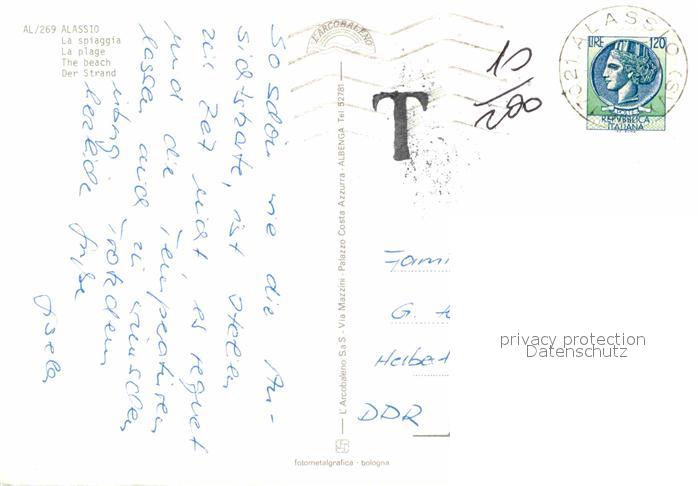 AL/269 ALASSIO
La spiaggia
La plage
The beach
Der Strand
So schön wie die An-
sichtskarte, ist
zur Zeit nicht, es regnet
und die Temperaturen
lassen auch zu wünschen
übrig. Trotzdem
herzliche Grüße
Gisela
L'ARCOBALENO
L'Arcobaleno S a S - Via Mazzini - Palazzo Costa Azzurra - ALBENGA Tel 52781
T
10
200
LIRE 120
POSTE
REPVBBLICA
ITALIANA
17021 ALASSIO (S
Fami
G.
DDR
privacy protection
Datenschutz
fotometalgrafica - bologna